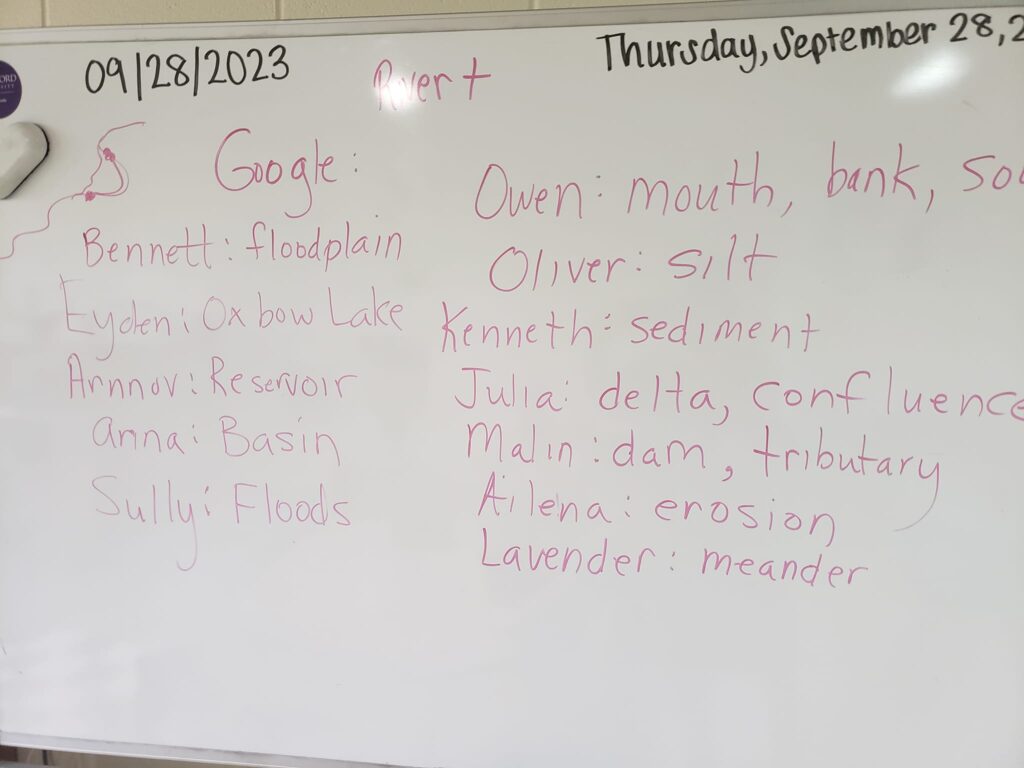 09/28/2023
River t
Thursday, September 28, 2
Google:
Bennett: floodplain
Eyden: Oxbow Lake
Arnnov: Reservoir
Anna: Basin
Sully: Floods
Owen: mouth, bank, so
Oliver: silt
Kenneth: sediment
Julia: delta, confluence
Malin: dam, tributary
Ailena: erosion
Lavender: meander